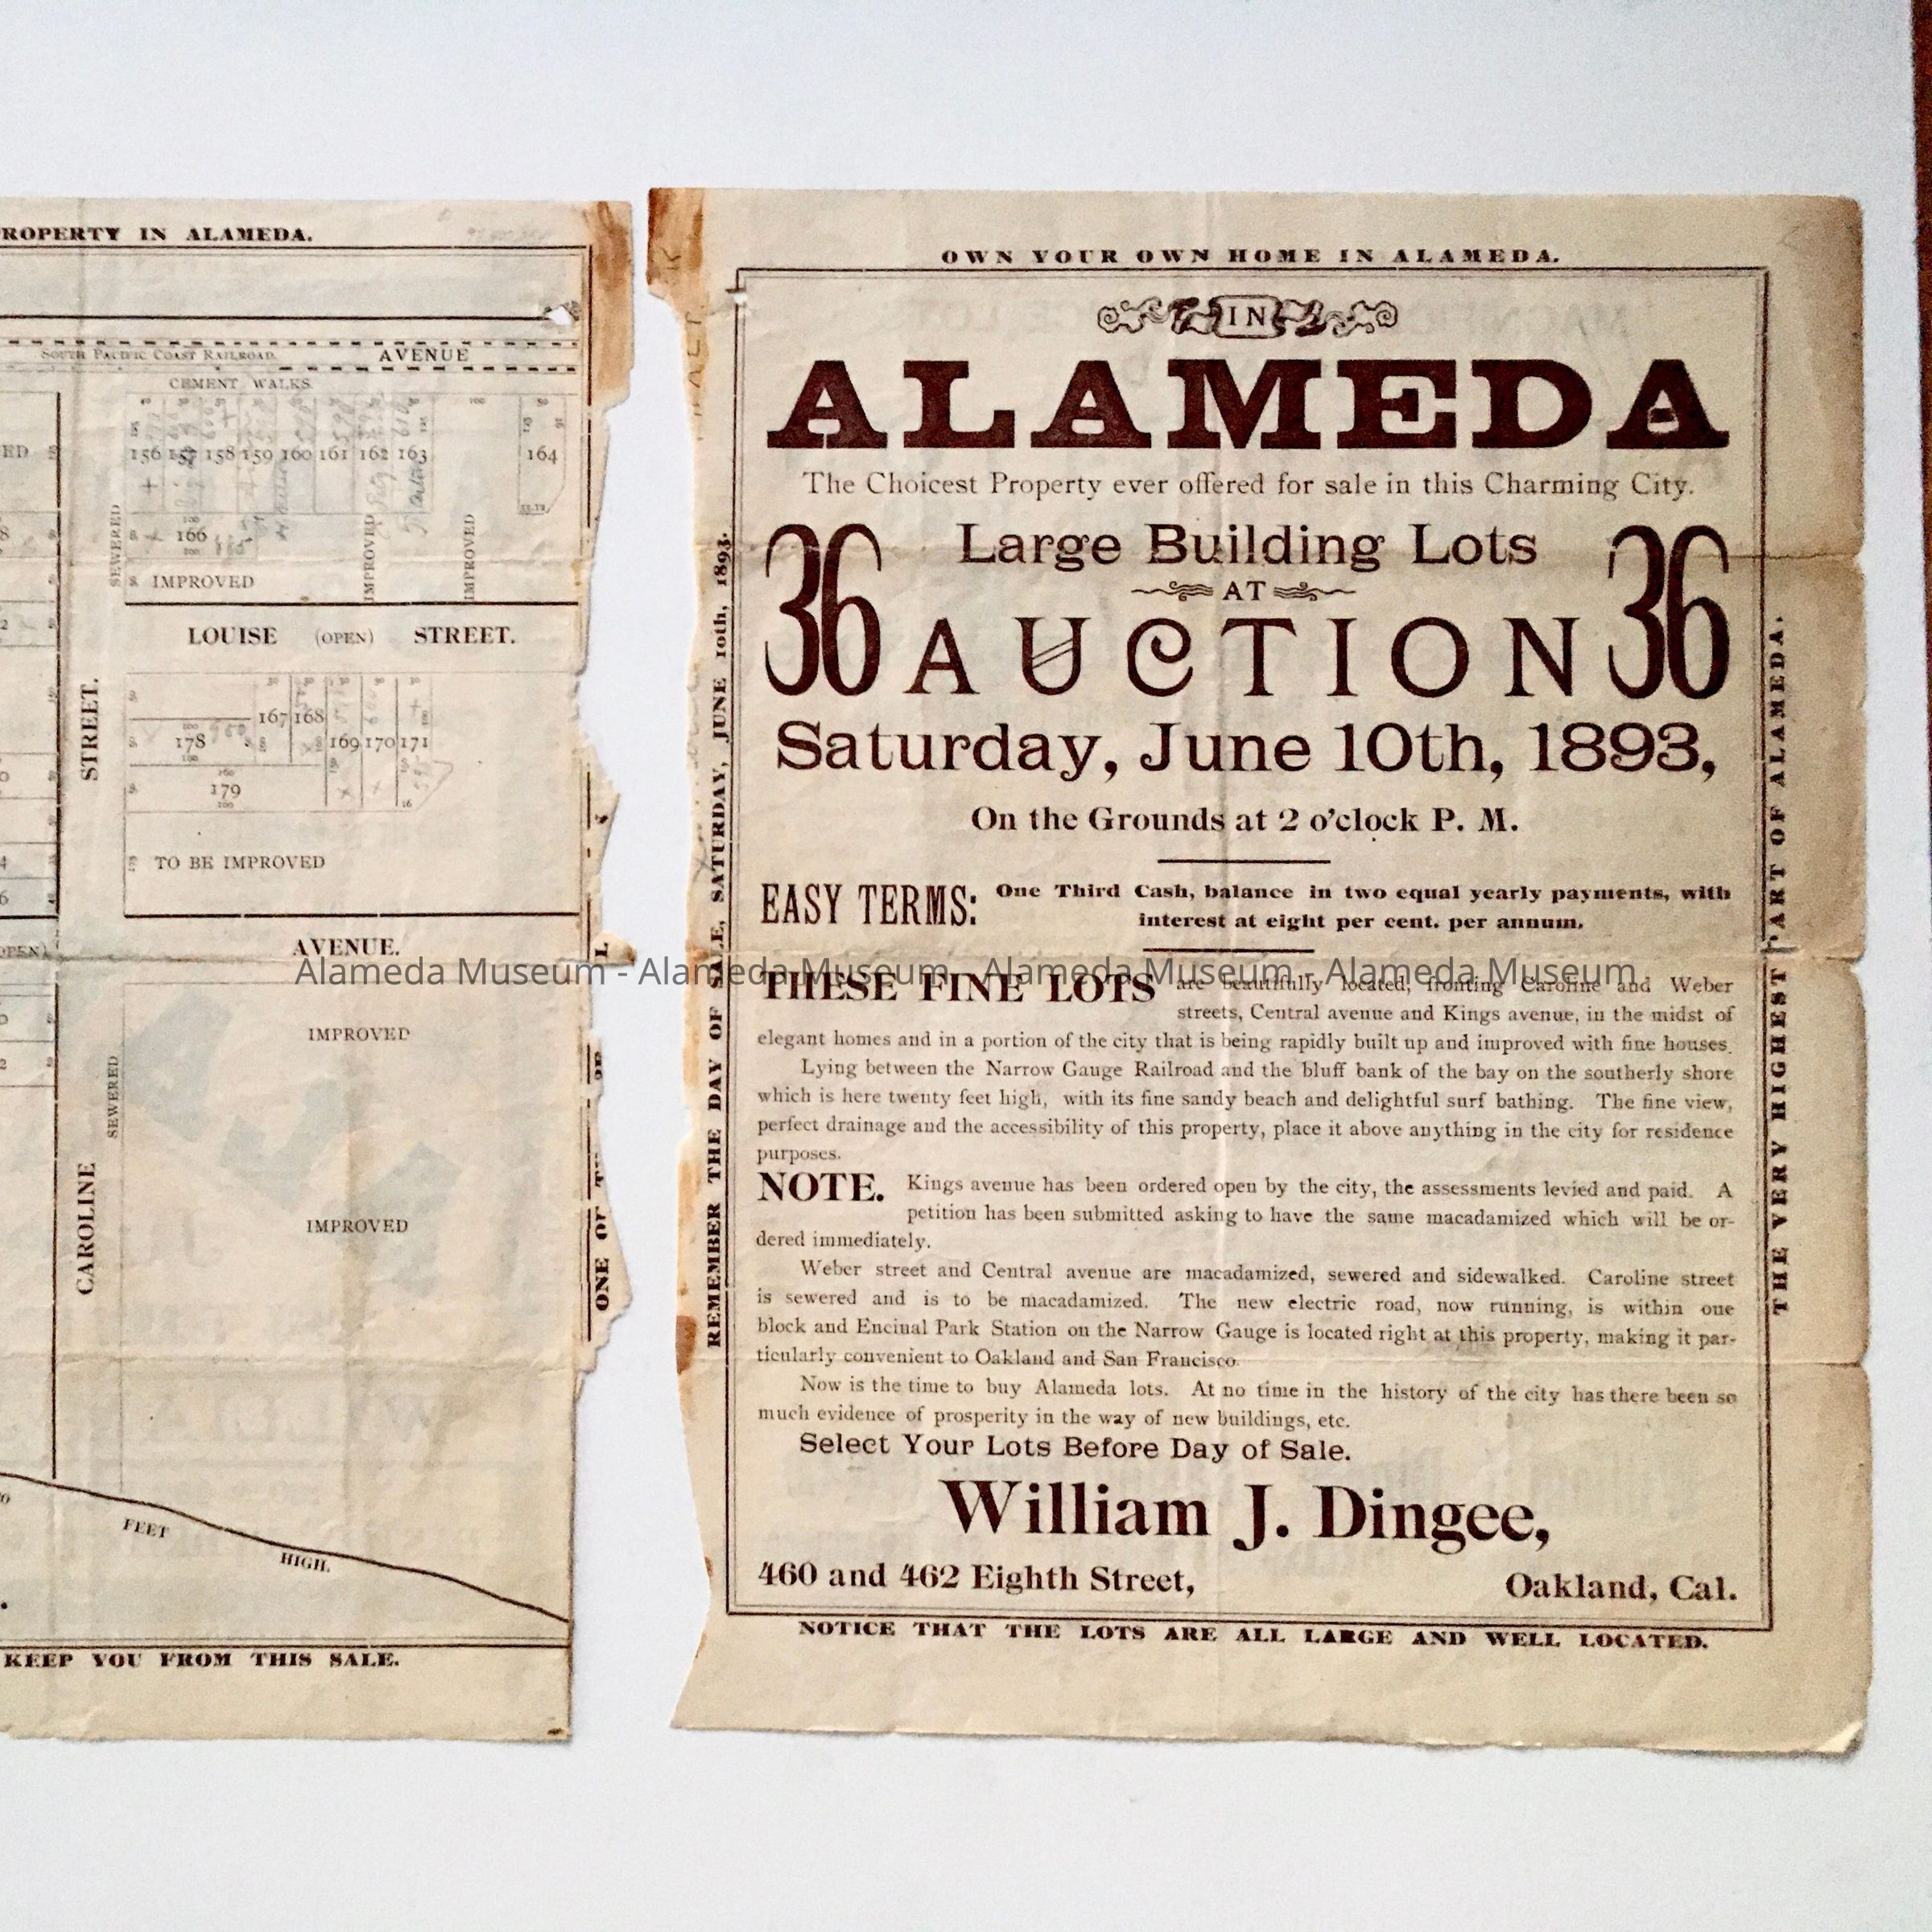 ROPERTY IN ALAMEDA.
SOUTH PACIFIC COAST RAILROAD. AVENUE
CEMENT WALKS.
156 157 158 159 160 161 162 163 164
SEWERED
166
IMPROVED
IMPROVED
IMPROVED
LOUISE (OPEN) STREET.
STREET.
167 168
178 169 170 171
179
TO BE IMPROVED
AVENUE.
IMPROVED
SEWERED
CAROLINE
IMPROVED
FEET
HIGH.
ONE OF
KEEP YOU FROM THIS SALE.
OWN YOUR OWN HOME IN ALAMEDA.
REMEMBER THE DAY OF SALE, SATURDAY, JUNE 10th, 1893.
IN
ALAMEDA
The Choicest Property ever offered for sale in this Charming City.
36 Large Building Lots 36
AT
AUCTION
Saturday, June 10th, 1893,
On the Grounds at 2 o'clock P. M.
EASY TERMS: One Third Cash, balance in two equal yearly payments, with
interest at eight per cent. per annum.
Alameda Museum - Alameda Museum - Alameda Museum - Alameda Museum
THESE FINE LOTS are beautifully located, fronting Caroline and Weber
streets, Central avenue and Kings avenue, in the midst of
elegant homes and in a portion of the city that is being rapidly built up and improved with fine houses.
Lying between the Narrow Gauge Railroad and the bluff bank of the bay on the southerly shore
which is here twenty feet high, with its fine sandy beach and delightful surf bathing. The fine view,
perfect drainage and the accessibility of this property, place it above anything in the city for residence
purposes.
NOTE. Kings avenue has been ordered open by the city, the assessments levied and paid. A
petition has been submitted asking to have the same macadamized which will be or-
dered immediately.
Weber street and Central avenue are macadamized, sewered and sidewalked. Caroline street
is sewered and is to be macadamized. The new electric road, now running, is within one
block and Encinal Park Station on the Narrow Gauge is located right at this property, making it par-
ticularly convenient to Oakland and San Francisco.
Now is the time to buy Alameda lots. At no time in the history of the city has there been so
much evidence of prosperity in the way of new buildings, etc.
Select Your Lots Before Day of Sale.
William J. Dingee,
460 and 462 Eighth Street, Oakland, Cal.
NOTICE THAT THE LOTS ARE ALL LARGE AND WELL LOCATED.
THE VERY HIGHEST PART OF ALAMEDA.